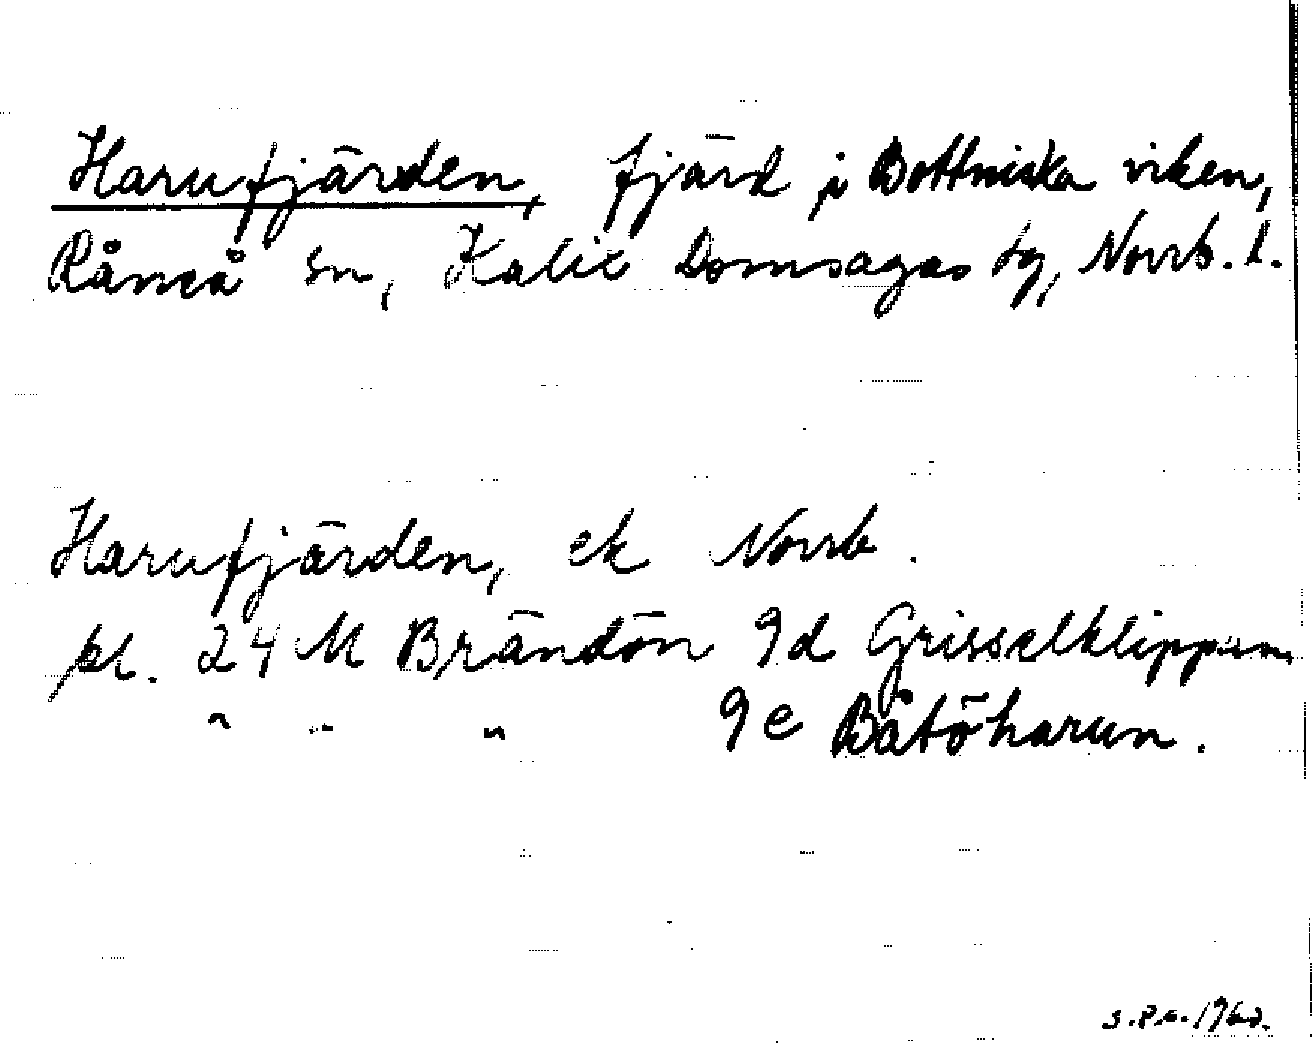 Harufjärden, fjärd i Bottniska viken,
Råneå sn, Kalix Domsagas tg, Norrb. l.
Harufjärden, ek Norrb.
pl. 24 M Brändön 9d Grisselklippan
" " " 9e Båtöharun.
S.P.G. 1962.